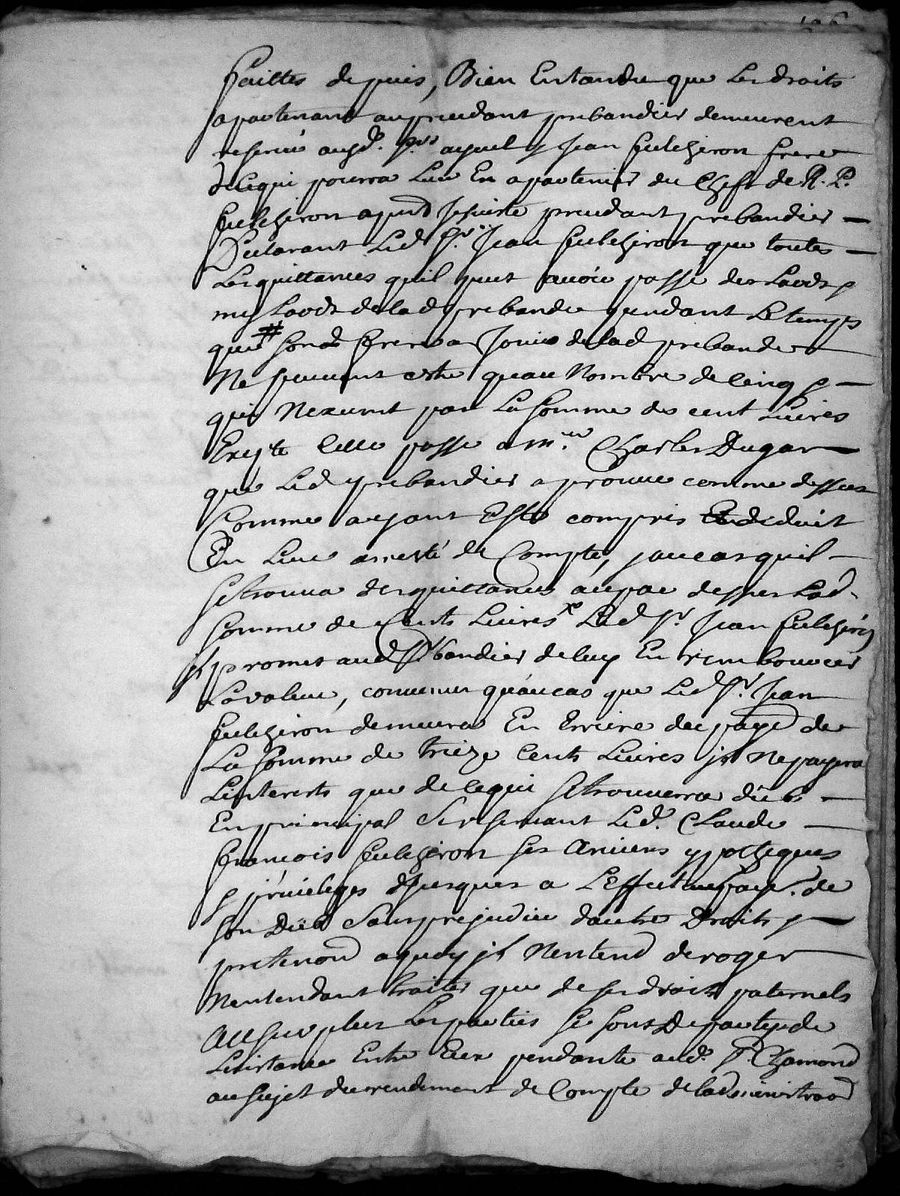 faittes depuis, Bien Entandu que les droits
apartenant au precedant prebandier demeurent
reservé aud. Sr. Jean fulchiron frere
de ce qui pourra luy En apartenir du chefs de R. P.
fulchiron jesuiste precedant prebandier —
Declarant Led. Sr. Jean fulchiron que toutes —
Les quittances quil peut avoir passe des Laods &
my Laods de lad prebande pendant Le temps
que # sond. frere a Jouis de lad prebande
Ne peuvent estre quau Nombre de cinq &
qui Nexcront pas La somme de cent Livres
Exepte celle passe a m.re Charles Dugas
que Led prebandier aprouve comme dessus
comme ayant Esté compris deduit
En Leur arresté de Compte, & au cas quil —
se trouva des quittances au pardesus Lad.
somme de Cents Livres Led. Sr. Jean fulchiron
promet aud prebandier de luy En rembourcer
La valeur, convenu qu'au cas que Led. Sr. Jean
fulchiron demeura En Erriere du paye. de
La somme de trieze Cents Livres jl Ne payera
L'interests que de ce qui se trouverra dub —
En principal se reservant Led. Claude —
francois fulchiron ses Entiens ypotheques
& privileges Jusques a L'effectuel paye. de
son Dub Sans prejudice d'autre Droits &
pretentions a quoy jl N'entend deroger
Nentendant traiter que de ses droits paternels
Au surplus Les parties se sont Departyes de
L'instance Entre Eux pendante aud. St Chamond
au sujet du rendement de Compte de l'administraon